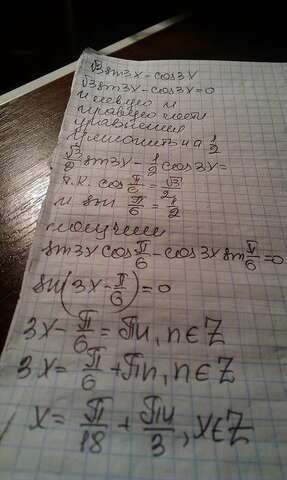 √3 sin3x = cos3x
√3 sin3x - cos3x = 0
и левую и
правую части
уравнения
умножить на 1/2
√3/2 sin3x - 1/2 cos3x =
т.к. cos π/6 = √3/2
и sin π/6 = 1/2
получим
sin3x cos π/6 - cos3x sin π/6 = 0
sin(3x - π/6) = 0
3x - π/6 = πn, n∈Z
3x = π/6 + πn, n∈Z
x = π/18 + πn/3, x∈Z